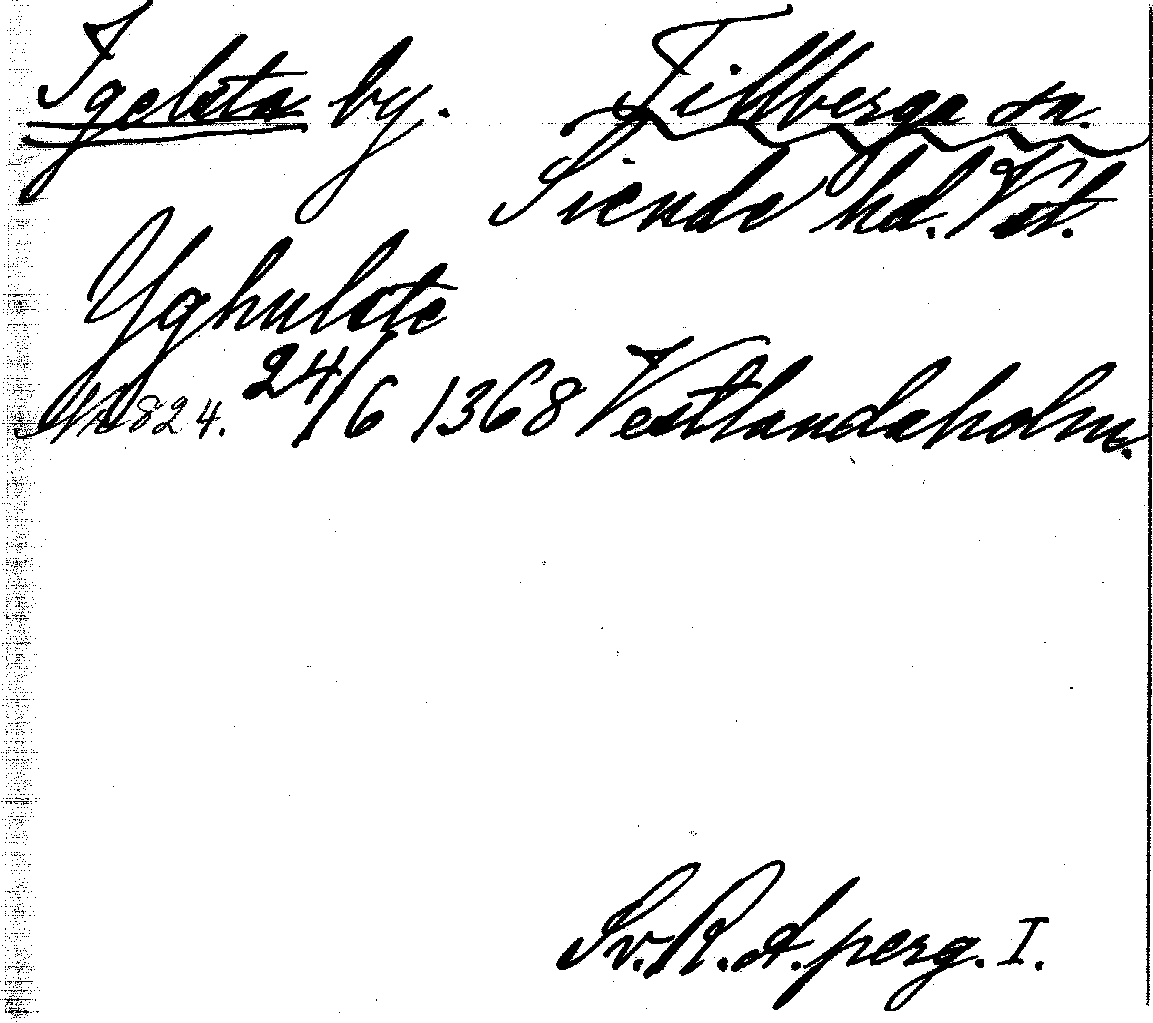 Igelsta by. Tillberga sn.
Siende hd. Vst.
Yghulste
No 824. 24/6 1368 Vestlandaholm.
Sv. R. A. perg. I.